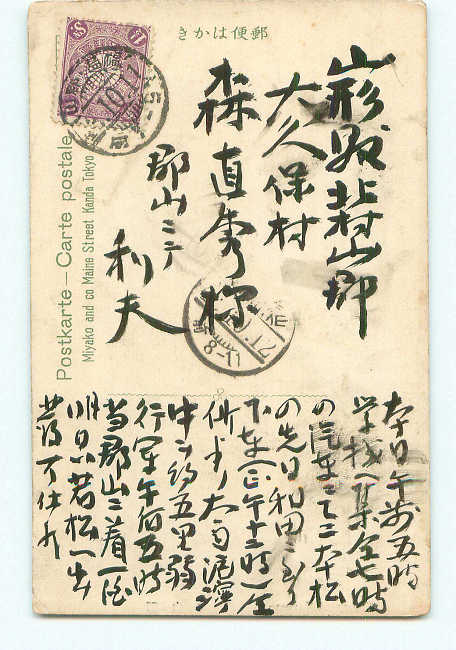 郵便はかき
Postkarte—Carte postale
Miyako and co Maine Street Kanda Tokyo
山形縣北村山郡
大久保村
森直秀様
郡山ニテ
利夫
8-11
本日午前五時
学校へ集合七時
の汽車ニて二本松
の先日和田ニ
下車 正午十二時
大雨泥濘
中ヲ約五里弱
行軍午后五時
当郡山ニ着一泊
明日ハ若松へ出
発可仕候